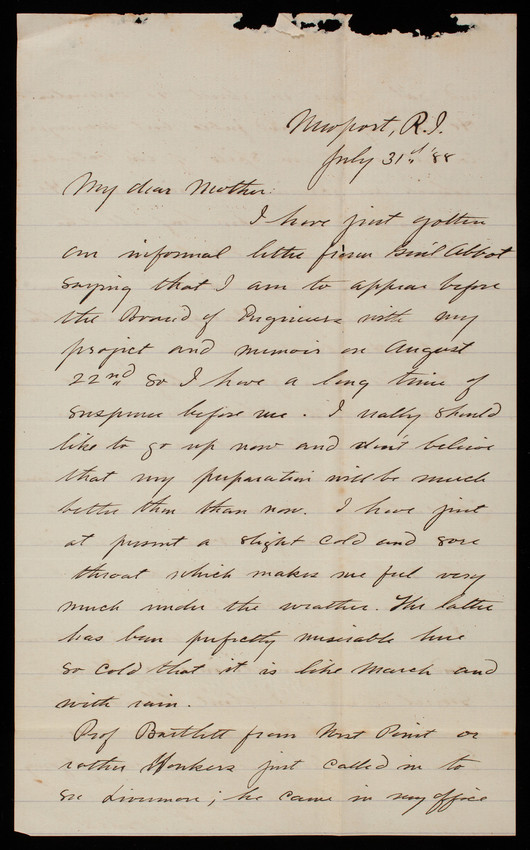 Newport, R.I.
July 31st '88
My dear Mother:
I have just gotten
an informal letter from Gen'l Abbot
saying that I am to appear before
the Board of Engineers with my
project and memoir on August
22nd so I have a long time of
suspense before me. I really should
like to go up now and don't believe
that my preparation will be much
better then than now. I have just
at present a slight cold and sore
throat which makes me feel very
much under the weather. The latter
has been perfectly miserable here
so cold that it is like March and
with rain.
Prof Bartlett from West Point or
rather Yonkers just called in to
see Livermore; he came in my office